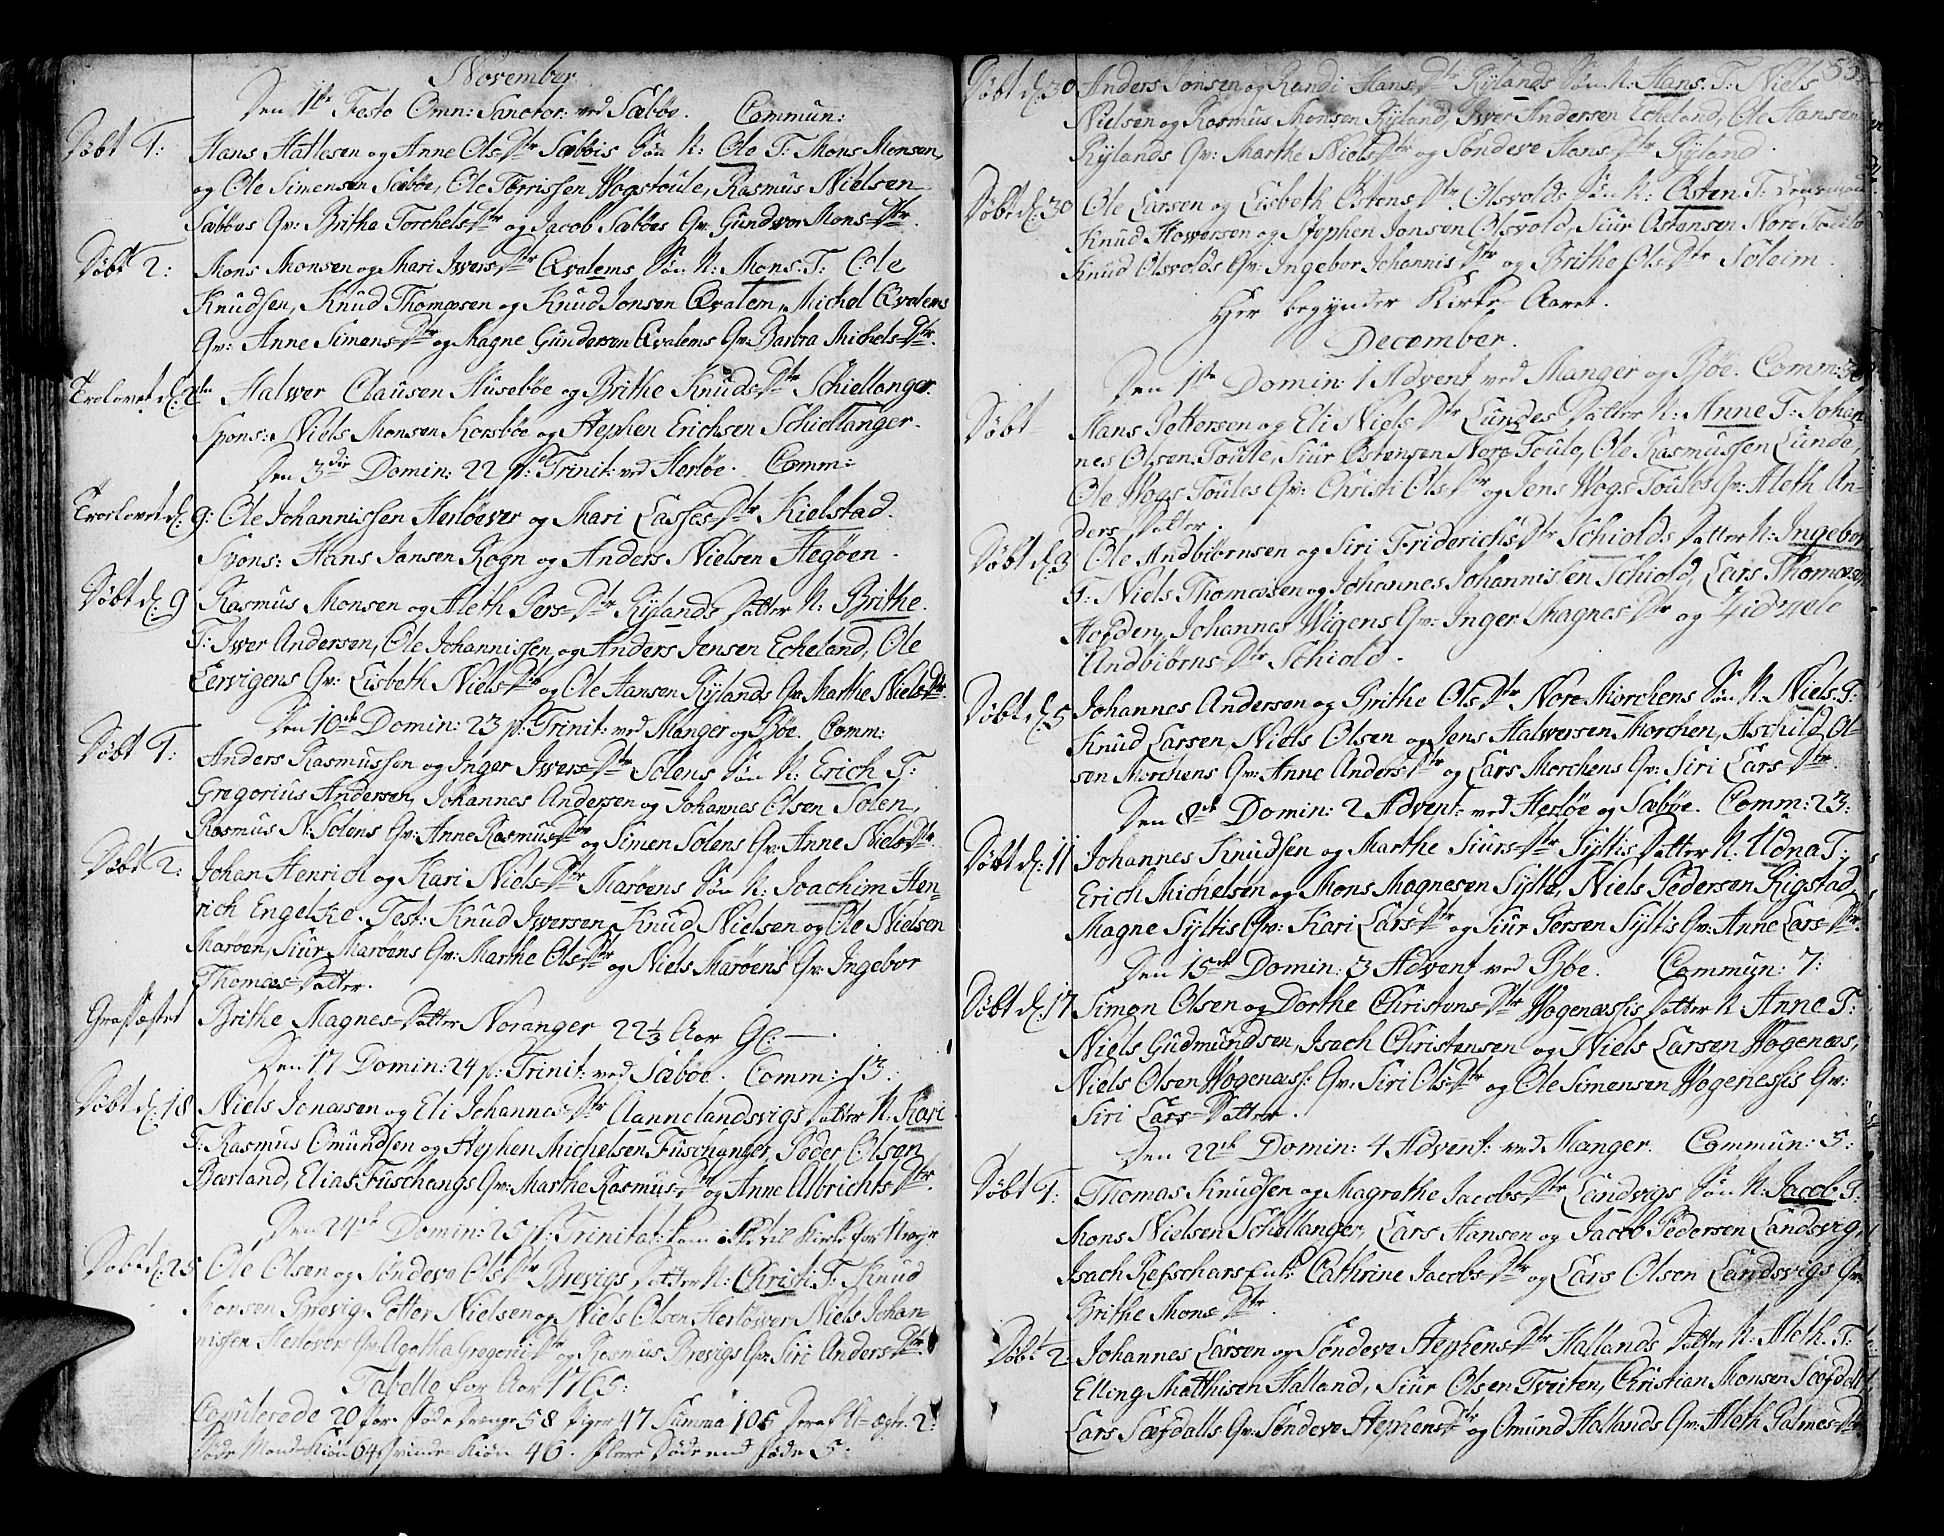 November
Den 1ste Festo Omn: Sanctor: ved Sæbøe. Commun:
Døbt 1: Hans Hatlesen og Anne Ols=Dtr Sæbøis Søn N: Ole T: Mons Monsen,
og Ole Simensen Sæbøe, Ole Torrissen Wogstoule, Rasmus Nielsen
Sæbøes Qv: Brithe Torchels=Dtr og Jacob Sæbøes Qv: Gundvor Mons=Dtr.
Døbt 2: Mons Monsen og Mari Iwers=Dtr Qvalems Søn N: Mons. T: Ole
Knudsen, Knud Thomæsen og Knud Jonsen Qvalem, Michel Qvalems
Qv: Anne Simens=Dtr og Magne Gundersen Qvalems Qv: Barbra Michels=Dtr.
Trolovet d: Halwer Clausen Husebøe og Brithe Knuds=Dtr Schiellanger.
Spons: Niels Monsen Korsbøe og Stephen Erichsen Schiellanger.
Den 3die Domin: 22 p: Trinit: ved Herløe. Comm:
Troelovet d: 9: Ole Johannissen Herløever og Mari Lasses=Dtr Kielstad.
Spons: Hans Jansen Rogn og Anders Nielsen Hegøen.
Døbt d: 9 Rasmus Monsen og Aleth Pers=Dtr Rylands Datter N: Brithe.
T: Iwer Andersen, Ole Johannissen og Anders Jensen Echeland, Ole
Lervigens Qv: Lisbeth Niels=Dtr og Ole Hansen Rylands Qv: Marthe Niels=Dtr.
Den 10de Domin: 23 p: Trinit: ved Manger og Bøe. Comm:
Døbt 1: Anders Rasmussen og Inger Iwers=Dtr Solens Søn N: Erich T:
Gregorius Andersen, Johannes Andersen og Johannes Olsen Solen,
Rasmus N: Solens Qv: Anne Rasmus=Dtr og Simen Solens Qv: Anne Niels=Dtr.
Døbt 2: Johan Henrich og Kari Niels=Dtr Marøens Søn N: Joachim Hen-
rich Engelke. Test: Knud Iwersen, Knud Nielsen og Ole Nielsen
Marøen, Siur Marøens Qv: Marthe Ols=Dtr og Niels Marøens Qv: Ingebor
Thomæs=Datter.
Græsfæstet Brithe Magnes=Datter Noranger 22 1/3 Aar Gl:
Den 17 Domin: 24 p: Trinit: ved Sæbøe. Comm: 13.
Døbt d: 18 Niels Jonæsen og Eli Johannes=Dtr Aannelandsvigs Datter N: Kari
T: Rasmus Omundsen og Stephen Michelsen Fuschanger, Peder Olsen
Bærland, Elias Fuschangs Qv: Marthe Rasmus=Dtr og Anne Albrichts=Dtr.
Den 24de Domin: 25 p: Trinitat: kom ikke til Kirke for
Døbt d: 25 Ole Olsen og Søndeve Ols=Dtr Brevigs Datter N: Christi T: Knud
Monsen Brevig, Petter Nielsen og Niels Olsen Herløever, Niels Johan-
nissen Herløvers Qv: Agatha Gregorii=Dtr og Rasmus Brevigs Qv: Siri Anders=Dtr.
Tabelle for Aar 1765:
Copulerede 20 par. Føde Drenge 58 Piger 47 Summa 105 Deraf U=ægte. 2:
Døde Mand=Kiøn 64 Qvinde=Kiøn 46. Flere Døde end føde 5:
53
Døbt d: 30 Anders Jonsen og Randi Hans=Dtr Rylands Søn N: Hans. T: Niels
Nielsen og Rasmus Monsen Ryland, Iwer Andersen Echeland, Ole Hansen
Rylands Qv: Marthe Niels=Dtr og Søndeve Hans=Dtr Ryland.
Døbt d: 30 Ole Larsen og Lisbeth Østens=Dtr. Olsvolds Søn N: Østen. T: Lensmand
Knud Howersen og Stephen Jonsen Olsvold, Siur Østensen Nore Toule
Knud Olsvolds Qv: Ingebor Johannis=Dtr og Brithe Ols=Dtr Soleim.
Her begynder Kirke=Aaret.
December.
Den 1ste Domin: 1 Advent ved Manger og Bøe. Comm:
Døbt Hans Pettersen og Eli Niels=Dtr Lundes Datter N: Anne T: Johan-
nes Olsen Toule, Siur Østensen Nore Toule, Ole Rasmussen Lunde,
Ole Wogs Toules Qv: Christi Ols=Dtr og Jens Wogs Toules Qv: Aleth An-
ders=Datter.
Døbt d: 3 Ole Andbiørnsen og Siri Friderichs=Dtr Schiolds Datter N: Ingebor
T: Niels Thomæsen og Johannes Johannissen Schiold, Lars Thomæsen
Hopden, Johannes Wigens Qv: Inger Magnes=Dtr og
Andbiørns=Dtr Schiold.
Døbt d: 5 Johannes Andersen og Brithe Ols=Dtr Nore Morchens Søn N: Niels T:
Knud Larsen, Niels Olsen og Jens Halwersen Morchen, Aschild Ol-
sen Morchens Qv: Anne Anders=Dtr og Lars Morchens Qv: Siri Lars=Dtr.
Den 8de Domin: 2 Advent: ved Herløe og Sæbøe. Comm: 23:
Døbt d: 11 Johannes Knudsen og Marthe Siurs=Dtr Syltis Datter N: Udna T:
Erich Michelsen og Mons Magnesen Sylte, Niels Pedersen Rigstad,
Magne Syltis Qv: Kari Lars=Dtr og Siur Persen Syltis Qv: Anne Lars=Dtr.
Den 15de Domin: 3 Advent ved Bøe. Commun: 7:
Døbt d: 17 Simon Olsen og Dorthe Christens=Dtr Wogenæssis Datter N: Anne T:
Niels Gudmundsen, Isach Christensen og Niels Larsen Wogenæs,
Niels Olsen Wogenæss: Qv: Siri Ols=Dtr og Ole Simensen Wogenessis Qv:
Siri Lars=Datter.
Den 22de Domin: 4 Advent: ved Manger. Commun: 5:
Døbt 1: Thomas Knudsen og Magrethe Jacobs=Dtr Landvigs Søn N: Jacob T:
Mons Nielsen Schellanger, Lars Hansen og Jacob Pedersen Landsvig,
Isach Refschars Enk: Cathrine Jacobs=Dtr og Lars Olsen Landsvigs Qv:
Brithe Mons=Dtr.
Døbt 2: Johannes Larsen og Søndeve Stephens=Dtr Hallands Datter N: Aleth. T:
Elling Matthisen Halland, Siur Olsen Tveiten, Christian Monsen Sæfdall
Lars Sæfdalls Qv: Søndeve Stephens=Dtr og Omund Hallands Qv: Aleth Palmes=Dtr